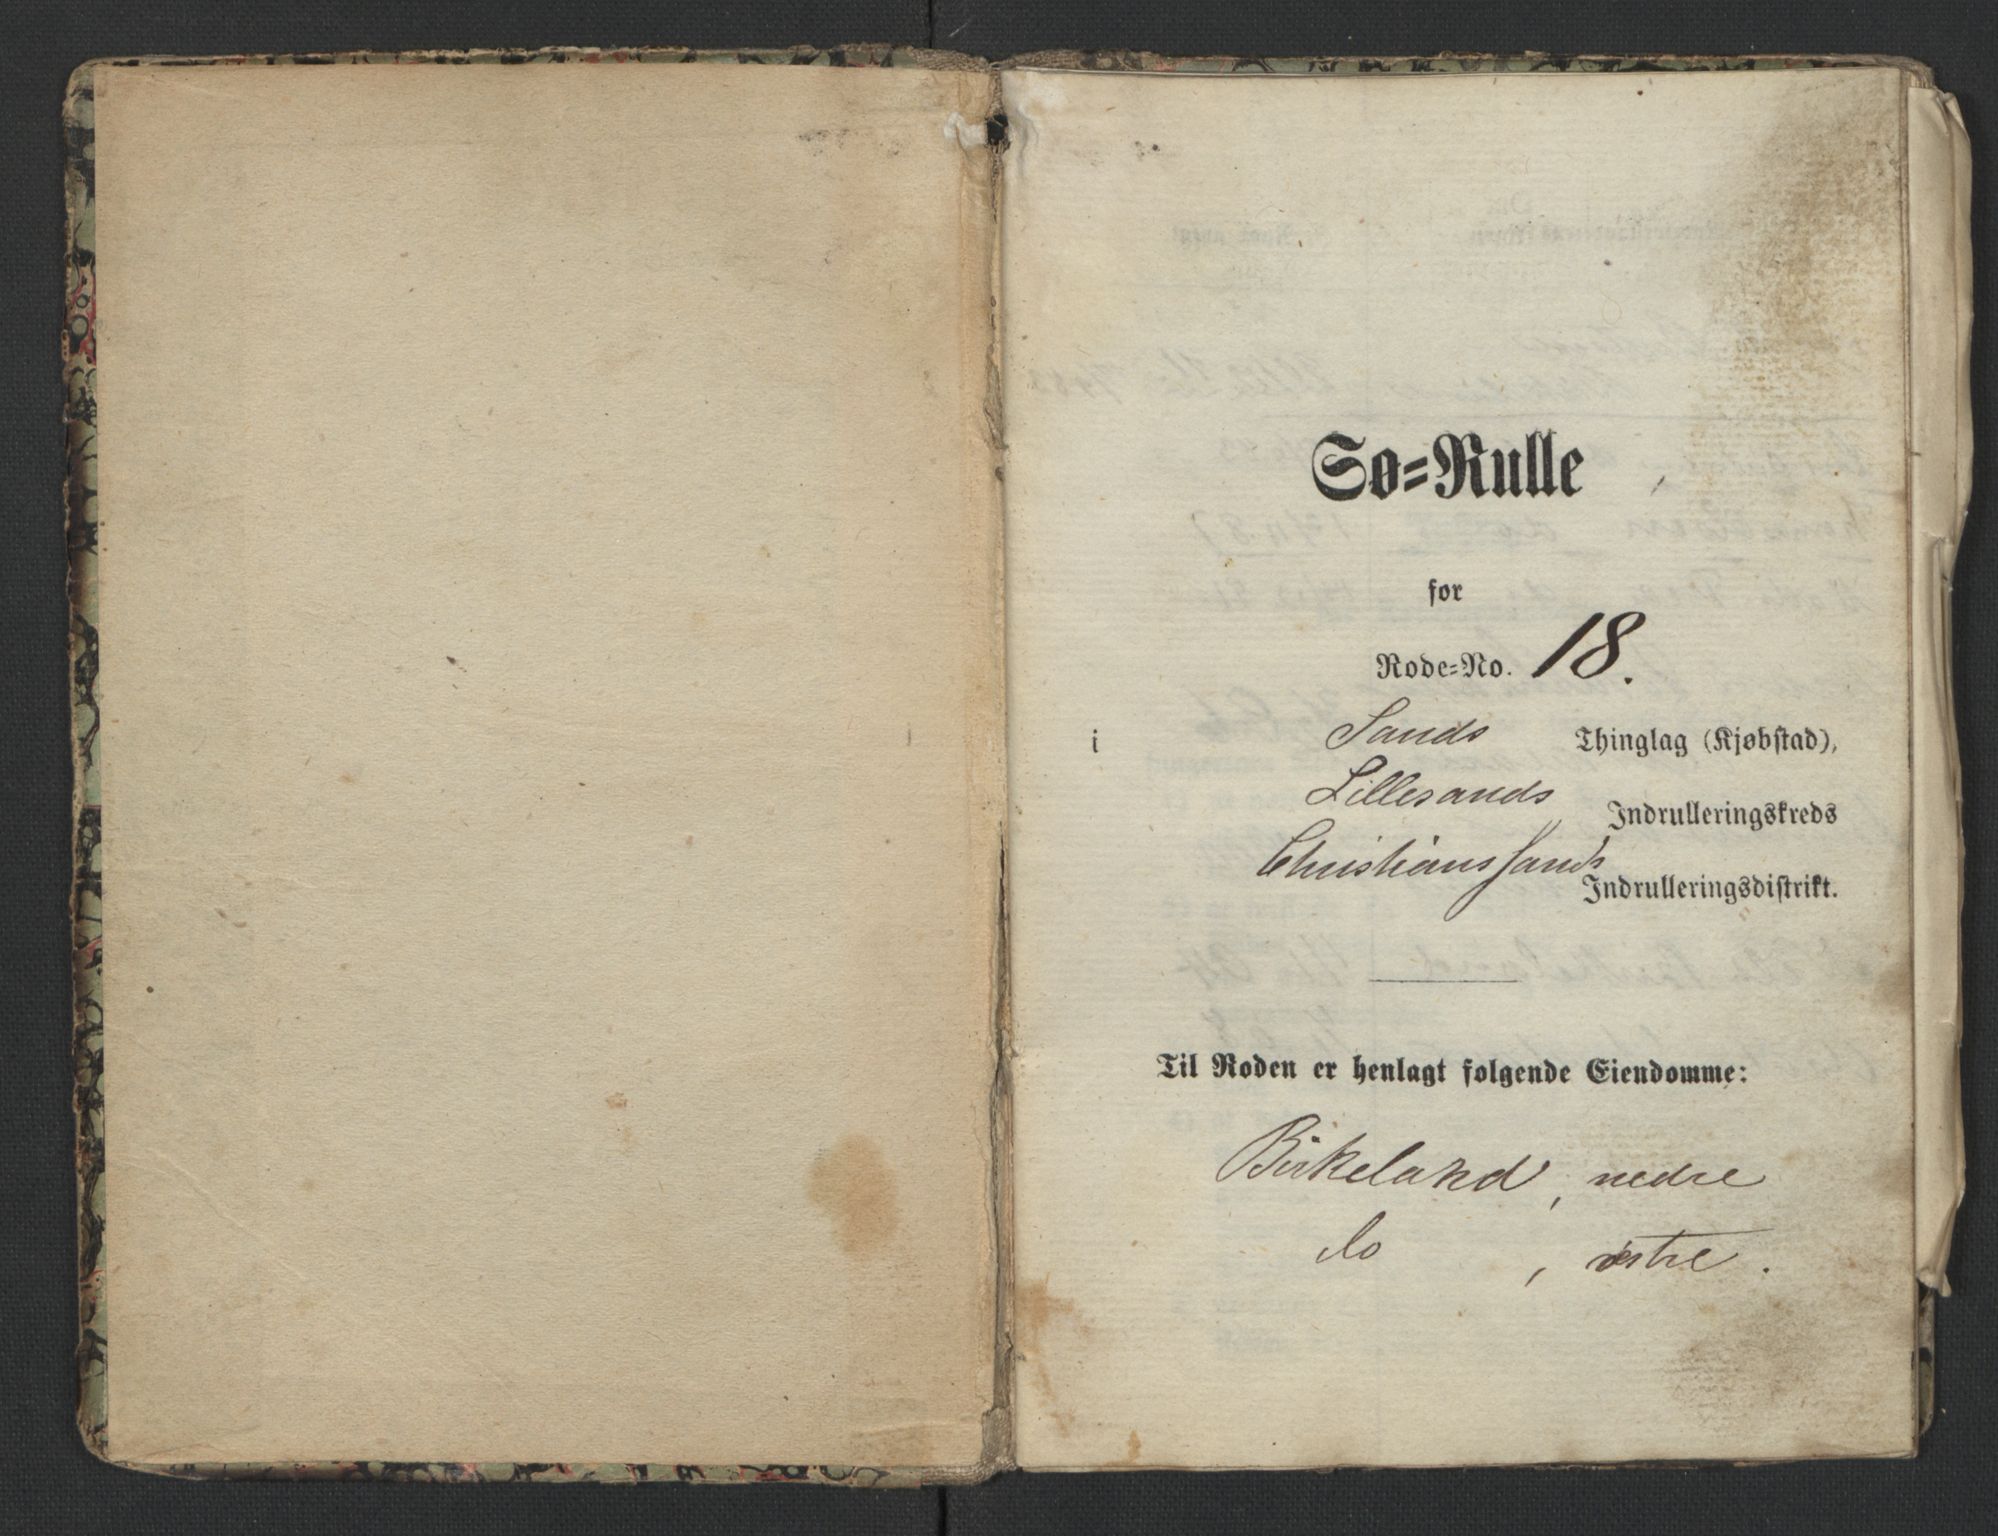 Sø-Rulle
for
Rode-No. 18.
i Sands Thinglag (Kjøbstad),
Lillesands Indrulleringskreds
Christianssands Indrulleringsdistrikt.
Til Roden er henlagt følgende Eiendomme:
Birkeland, nedre
do, østre.